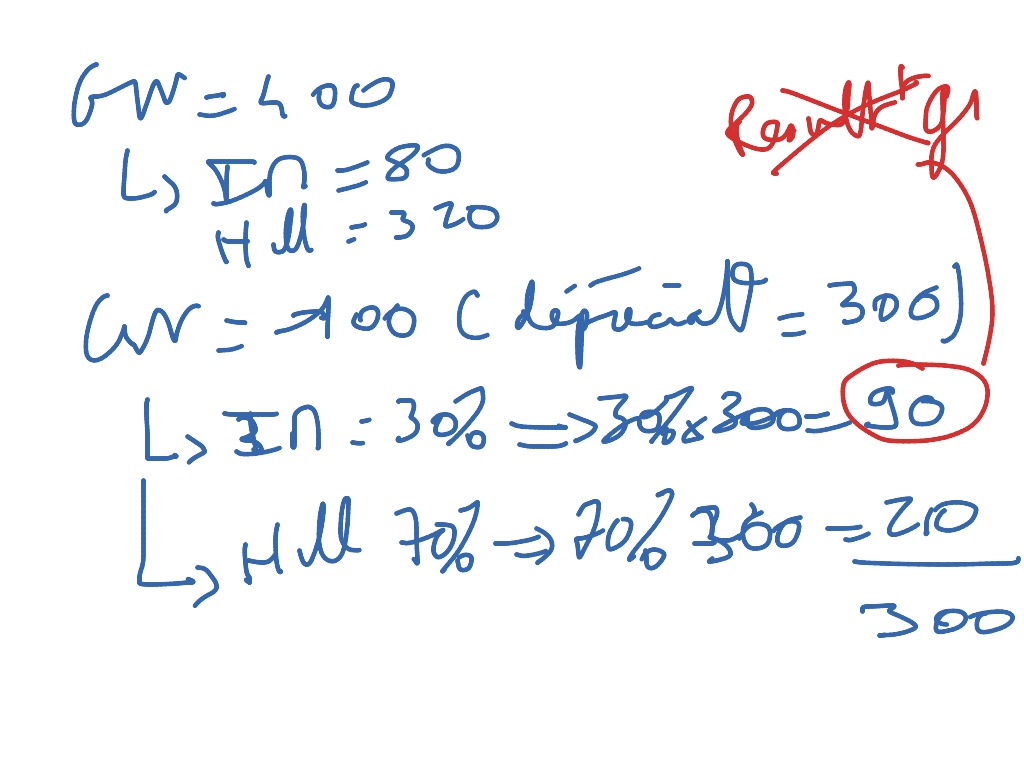 GW = 400
↳ In = 80
HM = 320
GW = 100 ( dépréciat° = 300)
↳ In = 30% => 30% x 300 = 90
↳ HM 70% => 70% 300 = 210
300